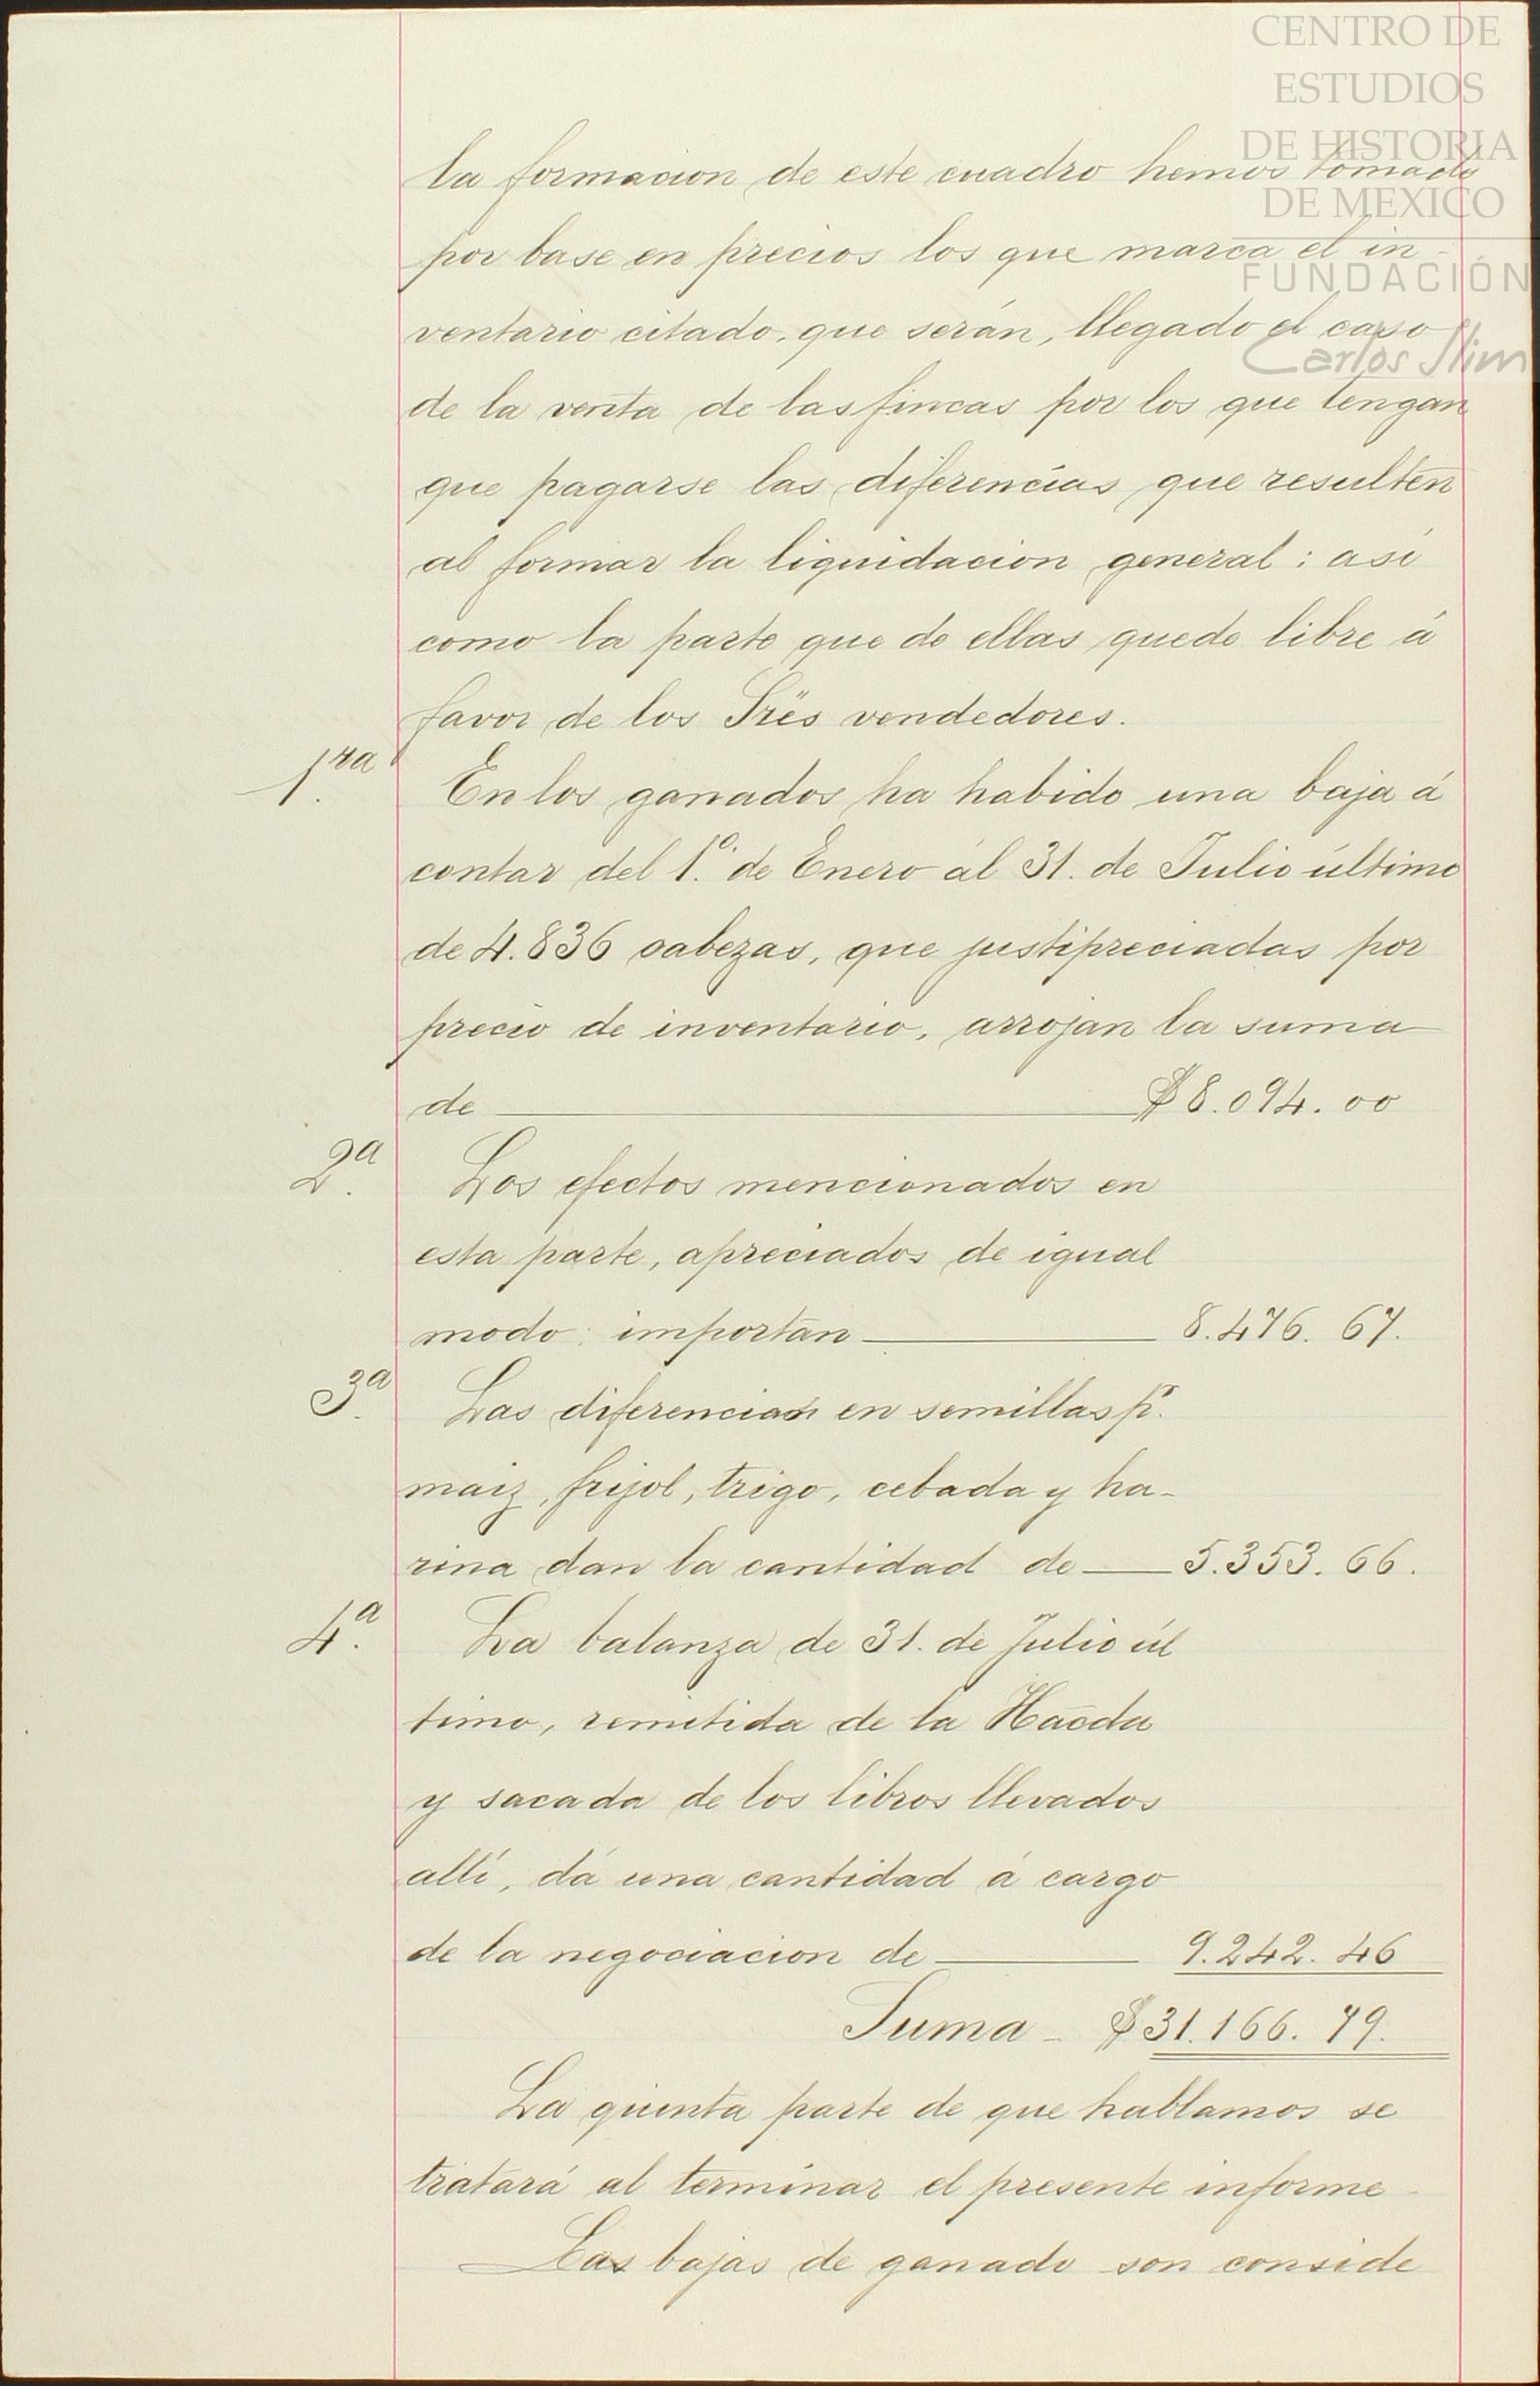 CENTRO DE
ESTUDIOS
DE HISTORIA
DE MEXICO
FUNDACIÓN
Carlos Slim
la formacion de este cuadro hemos tomado
por base en precios los que marca el in-
ventario citado, que serán, llegado el caso
de la venta de las fincas por los que tengan
que pagarse las diferencias que resulten
al formar la liquidacion general: asi
como la parte que de ellas quede libre á
favor de los Srës vendedores.
1.ra En los ganados ha habido una baja á
contar del 1.º de Enero al 31. de Julio último
de 4.836 cabezas, que justipreciadas por
precio de inventario, arrojan la suma
de $8.094.00
2.a Los efectos mencionados en
esta parte, apreciados de igual
modo importan 8.476.67.
3.a Las diferencias en semillas pr.
maiz, frijol, trigo, cebada y ha-
rina dan la cantidad de 5.353.66.
4.a La balanza de 31. de Julio úl
timo, remitida de la Hacda
y sacada de los libros llevados
allí, dá una cantidad á cargo
de la negociacion de 9.242.46
Suma - $31.166.79.
La quinta parte de que hablamos se
tratará al terminar el presente informe
Las bajas de ganado son conside